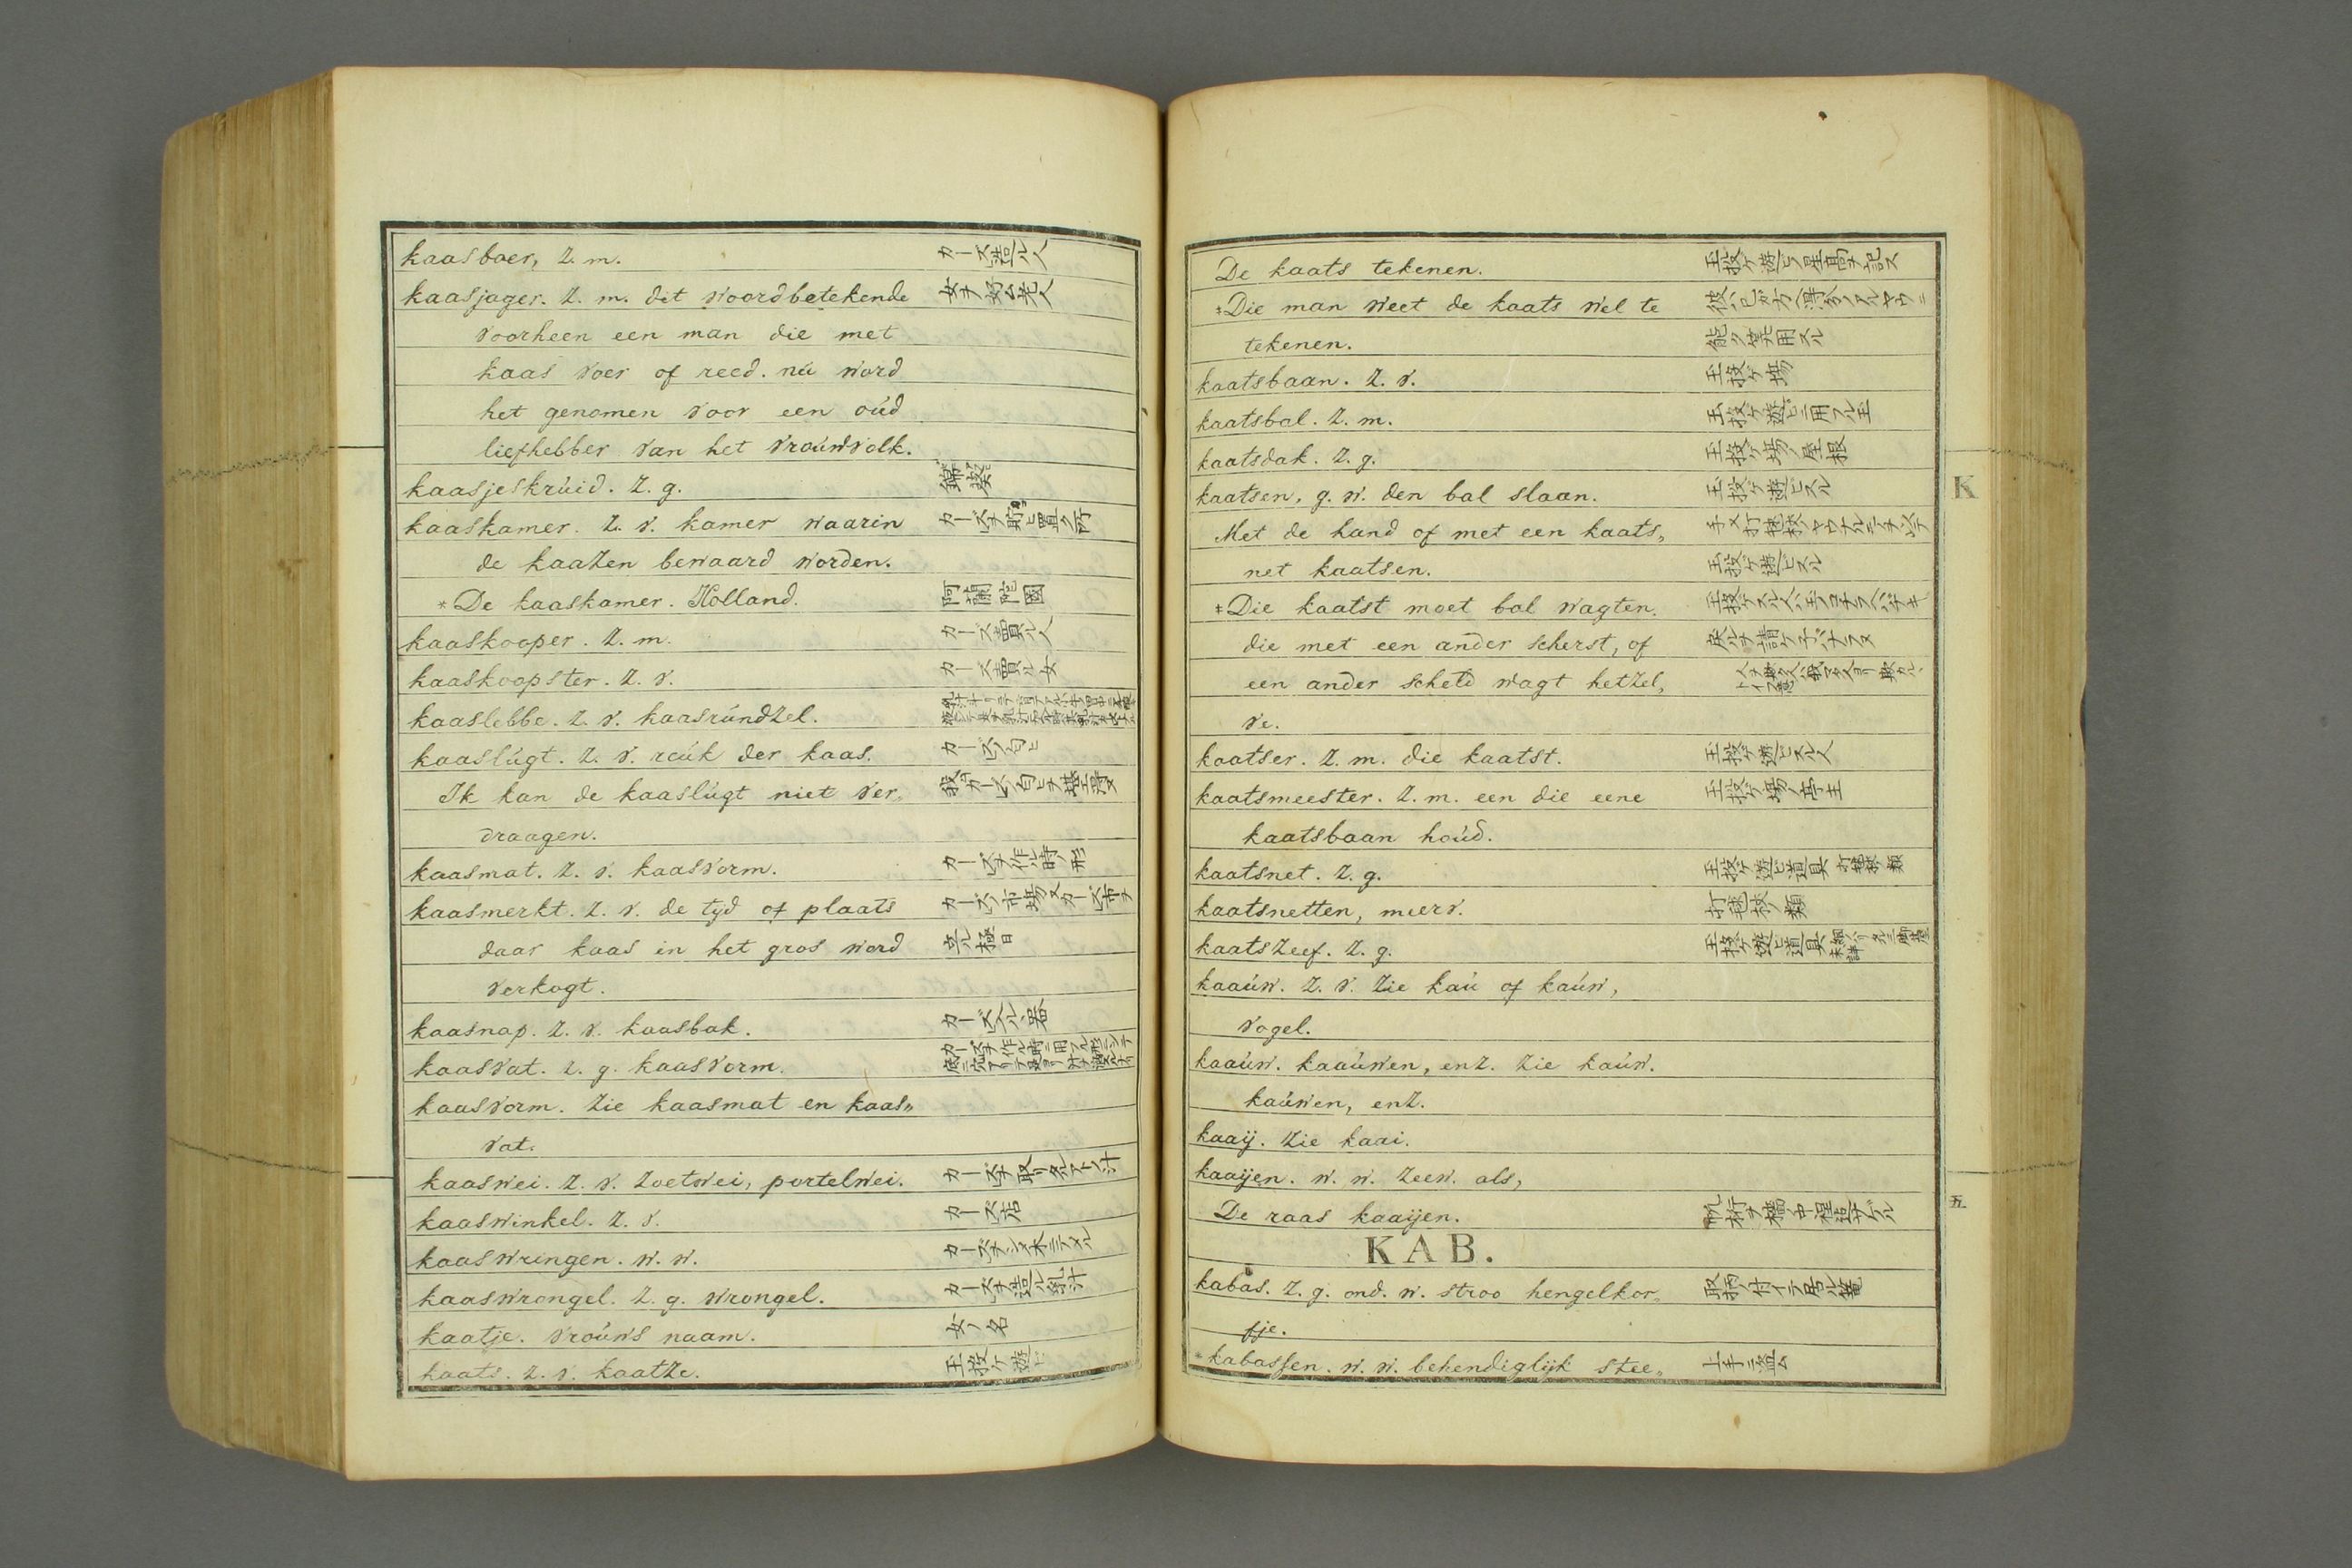 kaasboer, Z. m. カース造ル人
kaasjager. Z. m. dit woord betekende 女ヲ好ム老人
voorheen een man die met
kaas voer of reed. nú word
het genomen voor een oúd
liefhebber van het vroúwvolk.
kaasjeskrúid. Z. g. 錦葵
kaaskamer. Z. v. kamer waarin カースヲ貯ヒ置ク所
de kaazen bewaard worden.
*De kaaskamer. Holland. 阿蘭陀國
kaaskooper. Z. m. カース賣ル人
kaaskoopster. Z. v. カース賣ル女
kaaslebbe. Z. v. kaasrúndzel.
kaaslúgt. Z. v. reúk der kaas. カースノ匂ヒ
Ik kan de kaaslúgt niet ver„ 我カースノ匂ヒヲ堪ヱ得ヌ
draagen.
kaasmat. Z. v. kaasvorm. カースヲ作ル時ノ形
kaasmerkt. Z. v. de tyd of plaats カースノ市場又カース市ヲ
daar kaas in het gros word 立ル極日
verkogt.
kaasnap. Z. v. kaasbak. カース入ル器
kaasvat. Z. g. kaasvorm.
kaasvorm. Zie kaasmat en kaas„
vat.
kaaswei. Z. v. Zoetwei, portelwei. カースヲ取リタルアトノ汁
kaaswinkel. Z. v. カース店
kaaswringen. w. w.
kaaswrongel. Z. g. wrongel. カースヲ造ル乳汁
kaatje. vroúws naam. 女ノ名
kaats. Z. v. kaatze. 玉投ケ遊ヒ
De kaats tekenen. 玉投ケ遊ヒノ星高ヲ記ス
*Die man weet de kaats wel te
tekenen.
kaatsbaan. Z. v. 玉投ケ場
kaatsbal. Z. m. 玉投ケ遊ヒニ用フル玉
kaatsdak. Z. g. 玉投ケ場ノ屋根
kaatsen, g. w. den bal slaan. 玉投ケ遊ヒスル
Met de hand of met een kaats„ 手又打毬杖ノヤウナルモノヲ以テ
net kaatsen. 玉投ケ遊ヒスル
*Die kaatst moet bal wagten.
die met een ander scherst, of
een ander scheld wagt hetzel„
ve.
kaatser. Z. m. die kaatst. 玉投ケ遊ヒスル人
kaatsmeester. Z. m. een die eene 玉投ケ場ノ亭主
kaatsbaan hoúd.
kaatsnet. Z. g. 玉投ケ遊ヒ道具 打毬杖ノ類
kaatsnetten, meerv. 打毬杖ノ類
kaatszeef. Z. g. 玉投ケ遊ヒ道具
kaaúw. Z. v. Zie kaú of kaúw,
vogel.
kaaúw. kaaúwen, enz. Zie kaúw.
kaúwen, enz.
kaaij. Zie kaai.
kaaijen. w. w. Zeew. als,
De raas kaaijen. 帆桁ヲ檣ノ中程迠サゲル
KAB.
kabas. Z. g. ond. w. stroo hengelkor„ 取柄ノ付イテ居ル篭
fje.
*kabassen. w. w. behendiglijk stee„ 上手ニ盗ム
K
五